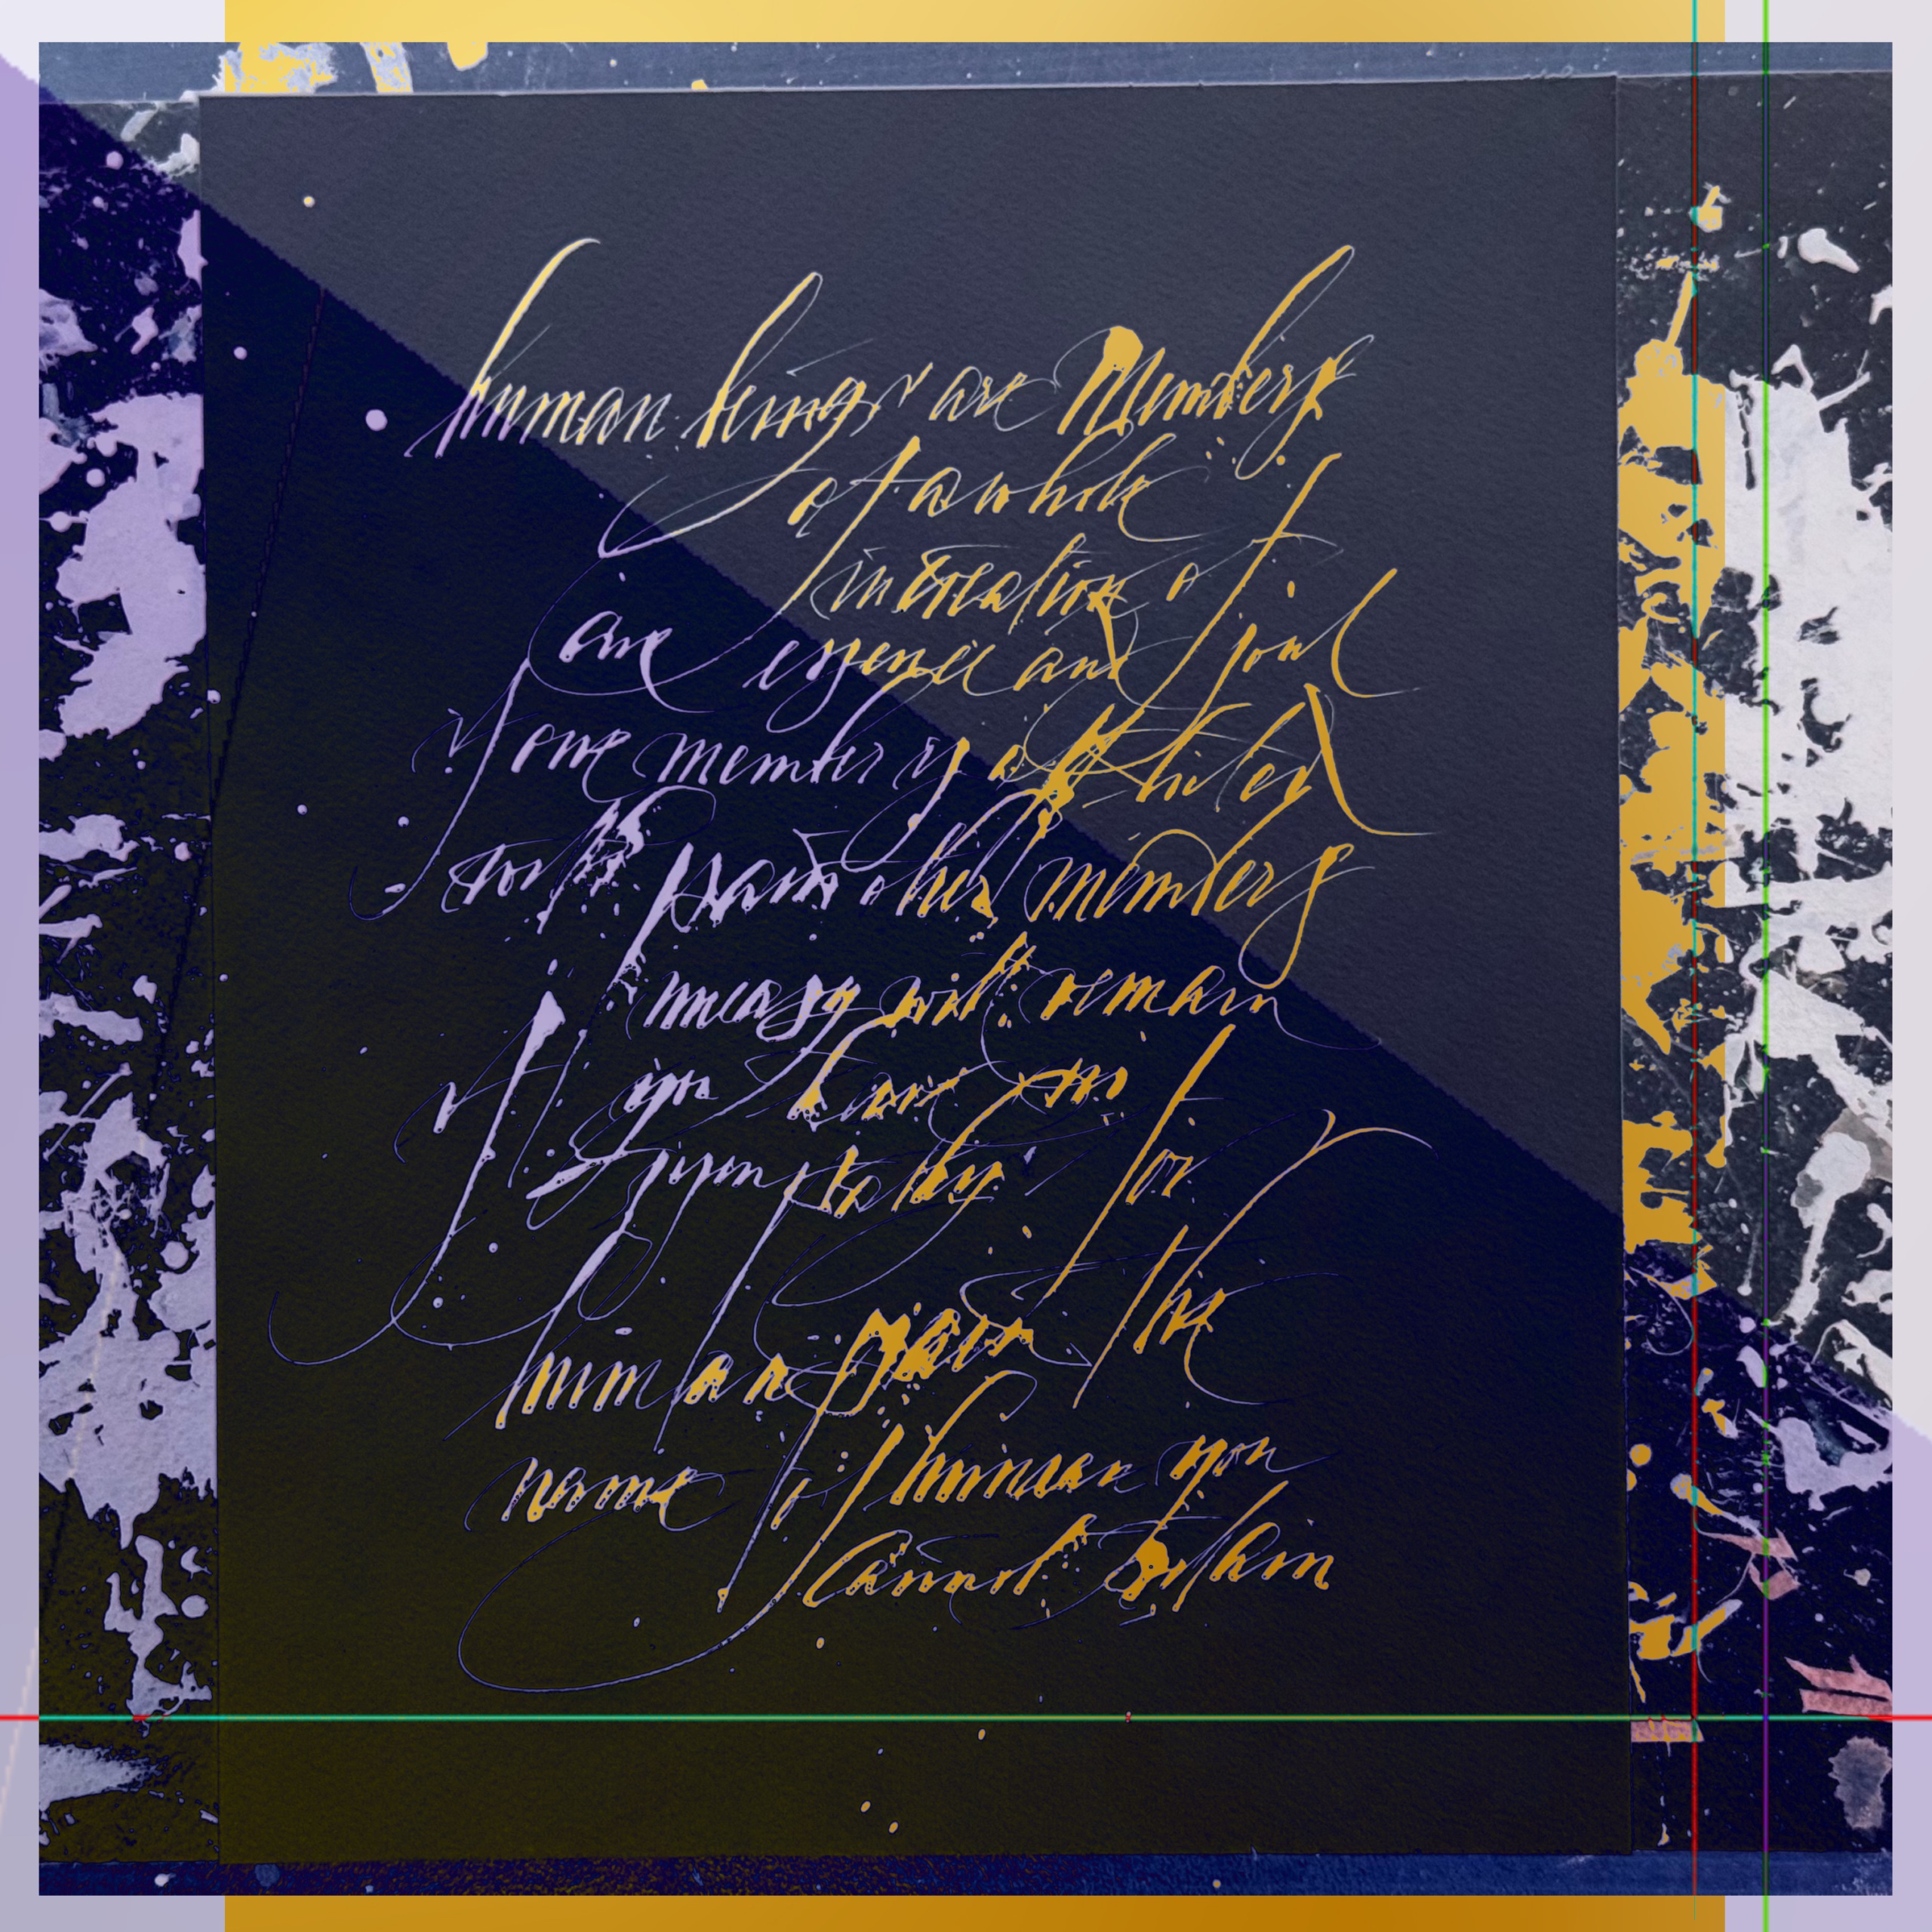 human beings are Members
of a whole
in creation of
one essence and soul
if one member is afflicted
with pain other members
uneasy will remain
if you have no
sympathy for
human pain the
name of human you
cannot retain